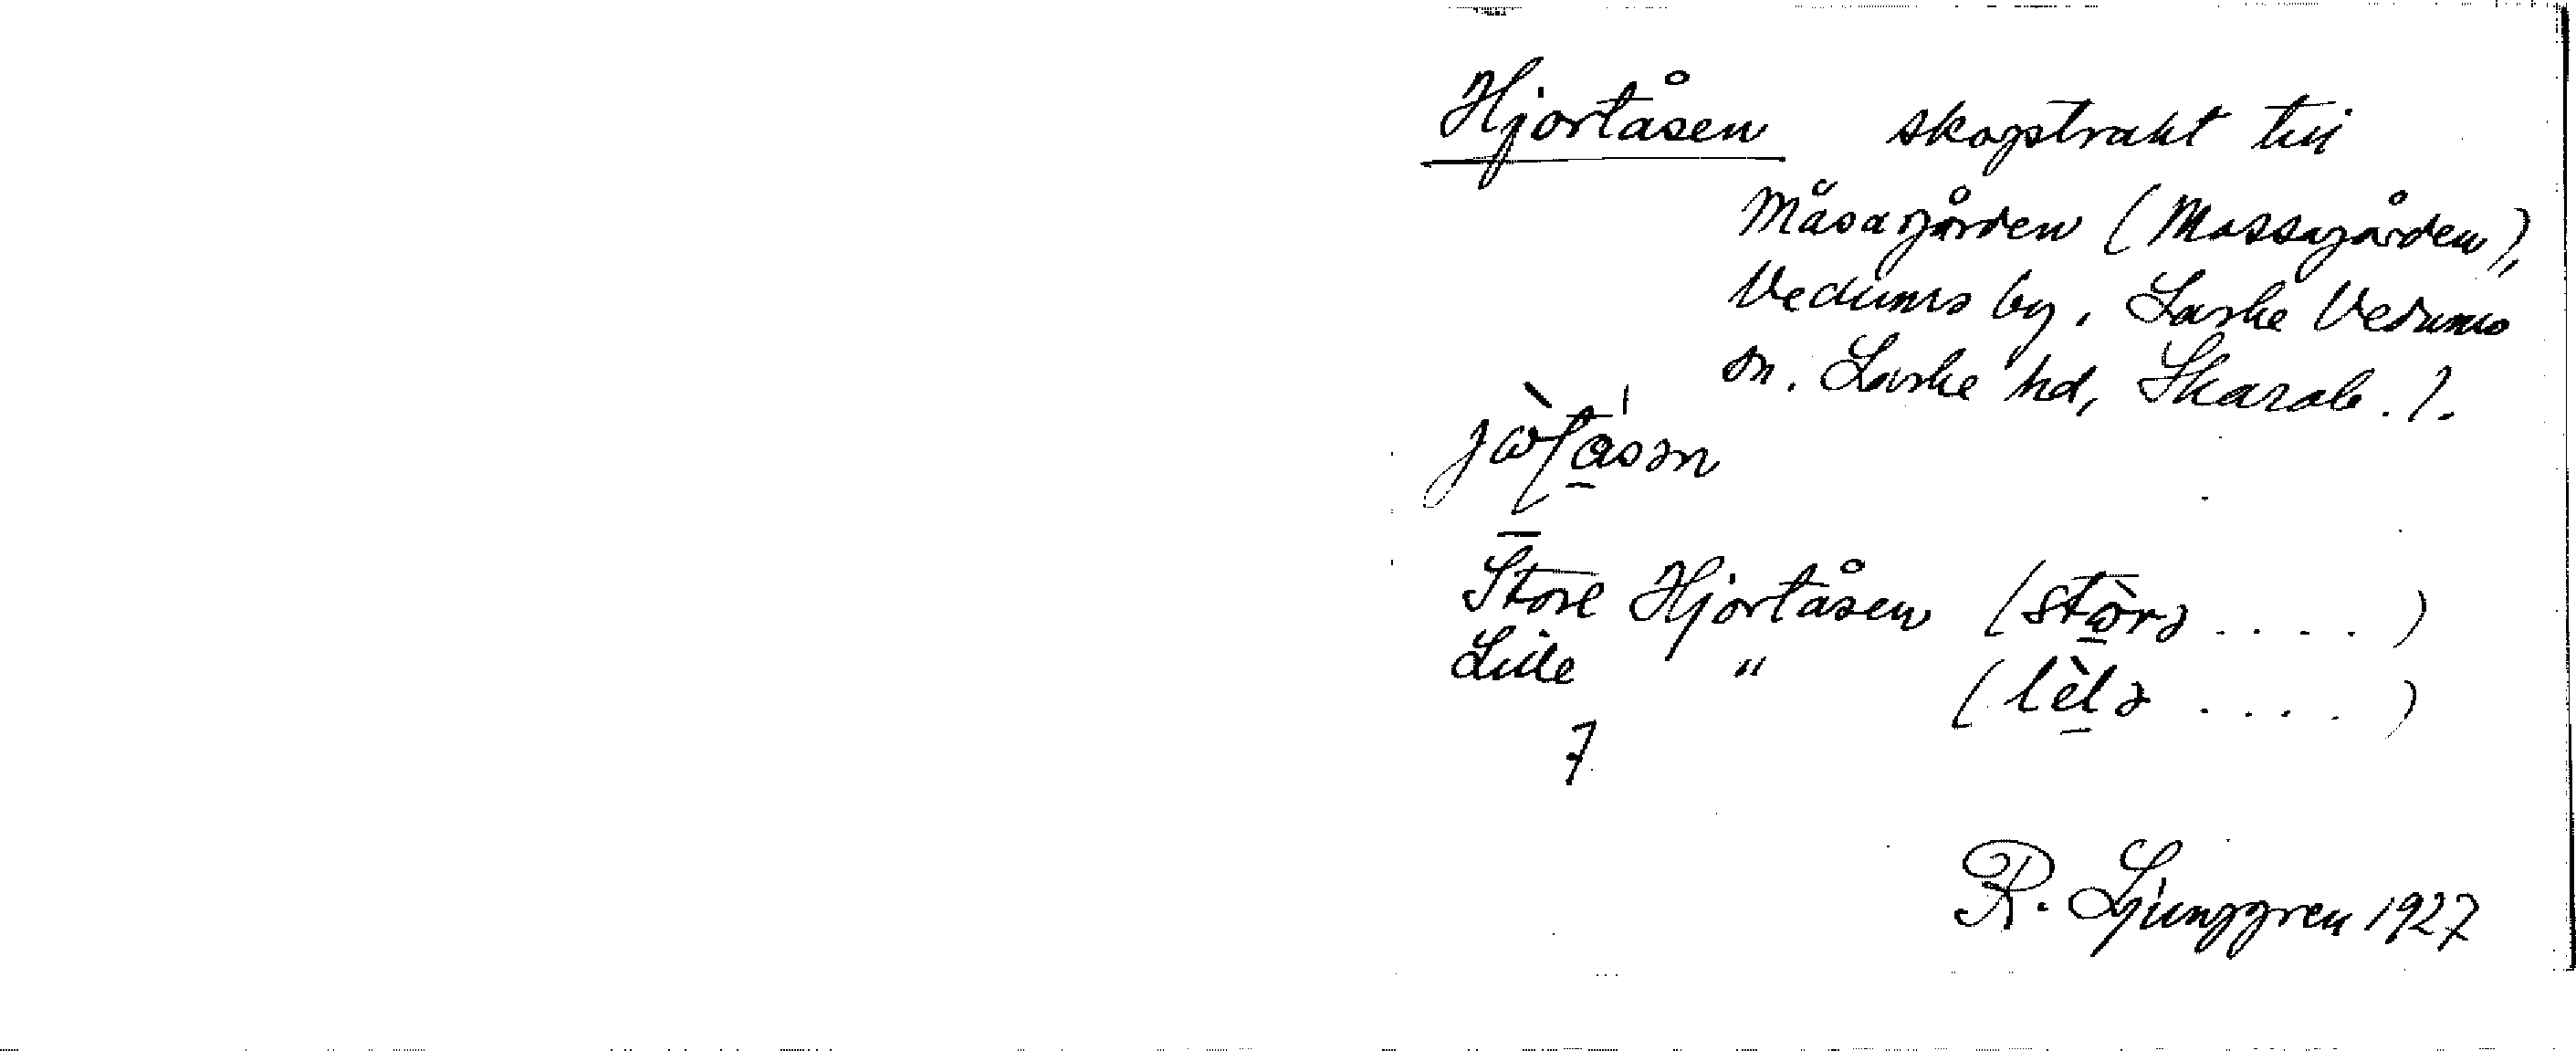 Hjortåsen skogstrakt till
Måsagården (Mossagården),
Vedums by, Laske Vedums
sn. Laske hd, Skarab. l.
Store Hjortåsen (stòrə . . . . )
Lille " (lèlə . . . . )
7
R. Ljunggren 1927